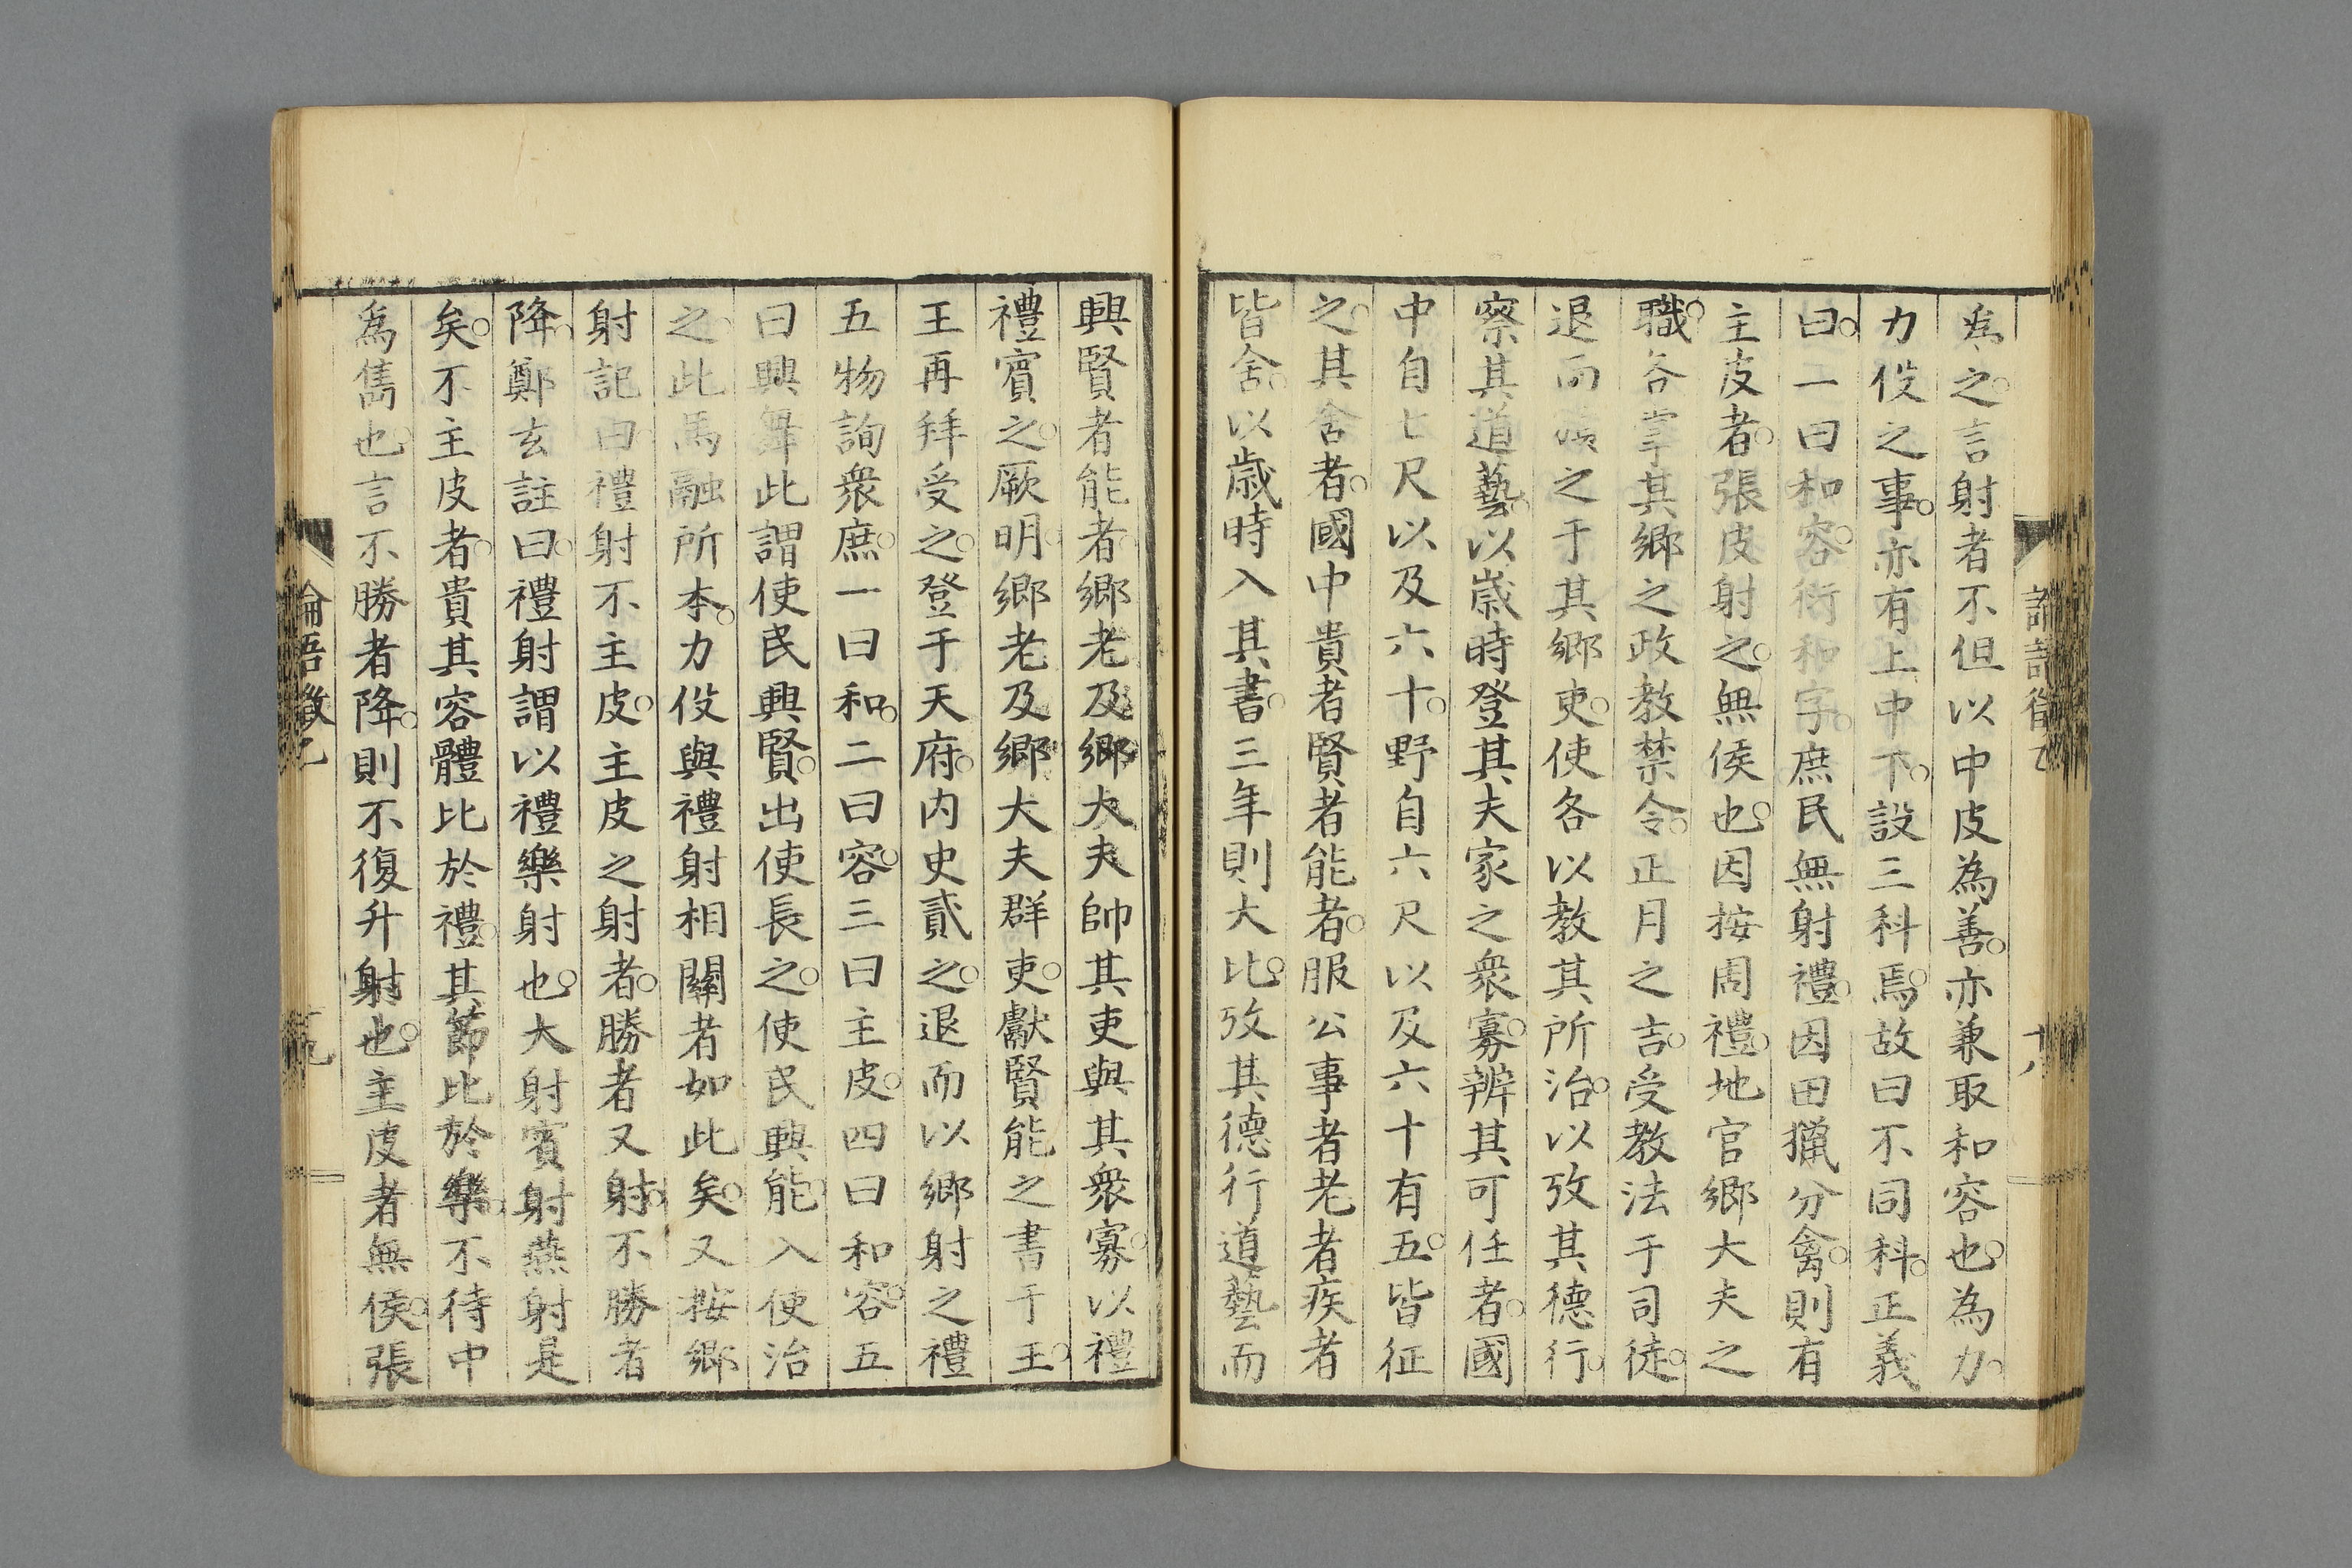 為之○言射者不但以中皮為善○亦兼取和容也○為力○
力役之事○亦有上中下○設三科焉○故曰不同科○正義
曰○一曰和容○衍和字○庶民無射禮○因田獵分禽○則有
主皮者○張皮射之○無侯也○因按周禮○地官鄉大夫之
職○各掌其鄉之政教禁令○正月之吉○受教法于司徒○
退而頒之于其鄉吏○使各以教其所治○以攷其德行○
察其道藝○以歲時登其夫家之衆寡○辨其可任者○國
中自七尺以及六十○野自六尺以及六十有五○皆征
之○其舍者○國中貴者賢者能者○服公事者老者疾者
皆舍○以歲時入其書○三年則大比○攷其德行道藝而
論語徵乙
十八
興賢者能者○鄉老及鄉大夫帥其吏與其衆寡○以禮
禮賓之○厥明○鄉老及鄉大夫群吏○獻賢能之書于王○
王再拜受之○登于天府○内史貳之○退而以鄉射之禮
五物詢衆庶○一曰和○二曰容○三曰主皮○四曰和容○五
曰興舞○此謂使民興賢○出使長之○使民興能○入使治
之○此馬融所本○力役與禮射相關者如此矣○又按鄉
射記曰○禮射不主皮○主皮之射者○勝者又射○不勝者
降○鄭玄註曰○禮射謂以禮樂射也○大射賓射燕射是
矣○不主皮者○貴其容體比於禮○其節比於樂○不待中
為雋也○言不勝者降○則不復升射也○主皮者無侯○張
論語徵乙
十九